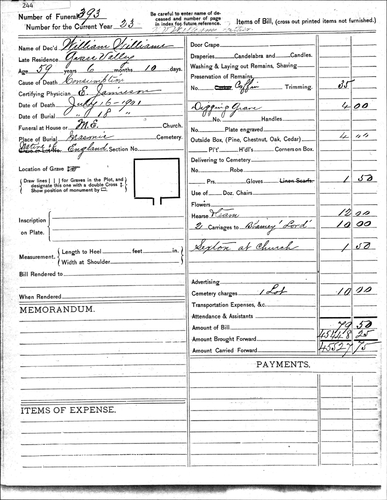 244
Number of Funeral 393
Number for the Current Year 23
Be careful to enter name of deceased and number of page in index for future reference.
Items of Bill, (cross out printed items not furnished.)
Name of Dec'd William Williams
Late Residence Grass Valley
Age 59 years 6 months 10 days.
Cause of Death Consumption
Certifying Physician E. Jamieson
Date of Death July 16-1901
Date of Burial " 18 "
Funeral at House or M.E. Church.
Place of Burial Masonic Cemetery.
England Section No.
Location of Grave
Draw lines | | for Graves in the Plot, and designate this one with a double Cross
Show position of monument by
Inscription on Plate.
Measurement. Length to Heel feet in.
Width at Shoulder
Bill Rendered to
When Rendered
MEMORANDUM.
ITEMS OF EXPENSE.
Door Crape
Draperies Candelabra and Candles.
Washing & Laying out Remains, Shaving
Preservation of Remains
No. Coffin Trimming. 35
Digging Grave 4 00
No. Handles
Plate engraved
Outside Box (Pine, Chestnut, Oak, Cedar) 4 00
Pl't H'd'ls Corners on Box.
Delivering to Cemetery
No. Robe
Prs. Gloves Linen Scarfs 1 50
Use of Doz. Chairs
Flowers
Hearse Team 12 00
2 Carriages to 10 00
Sexton at Church 1 50
Advertising
Cemetery charges 1 Lot 10 00
Transportation Expenses, &c.
Attendance & Assistants
Amount of Bill 79 50
Amount Brought Forward 45448 25
Amount Carried Forward 45527 75
PAYMENTS.